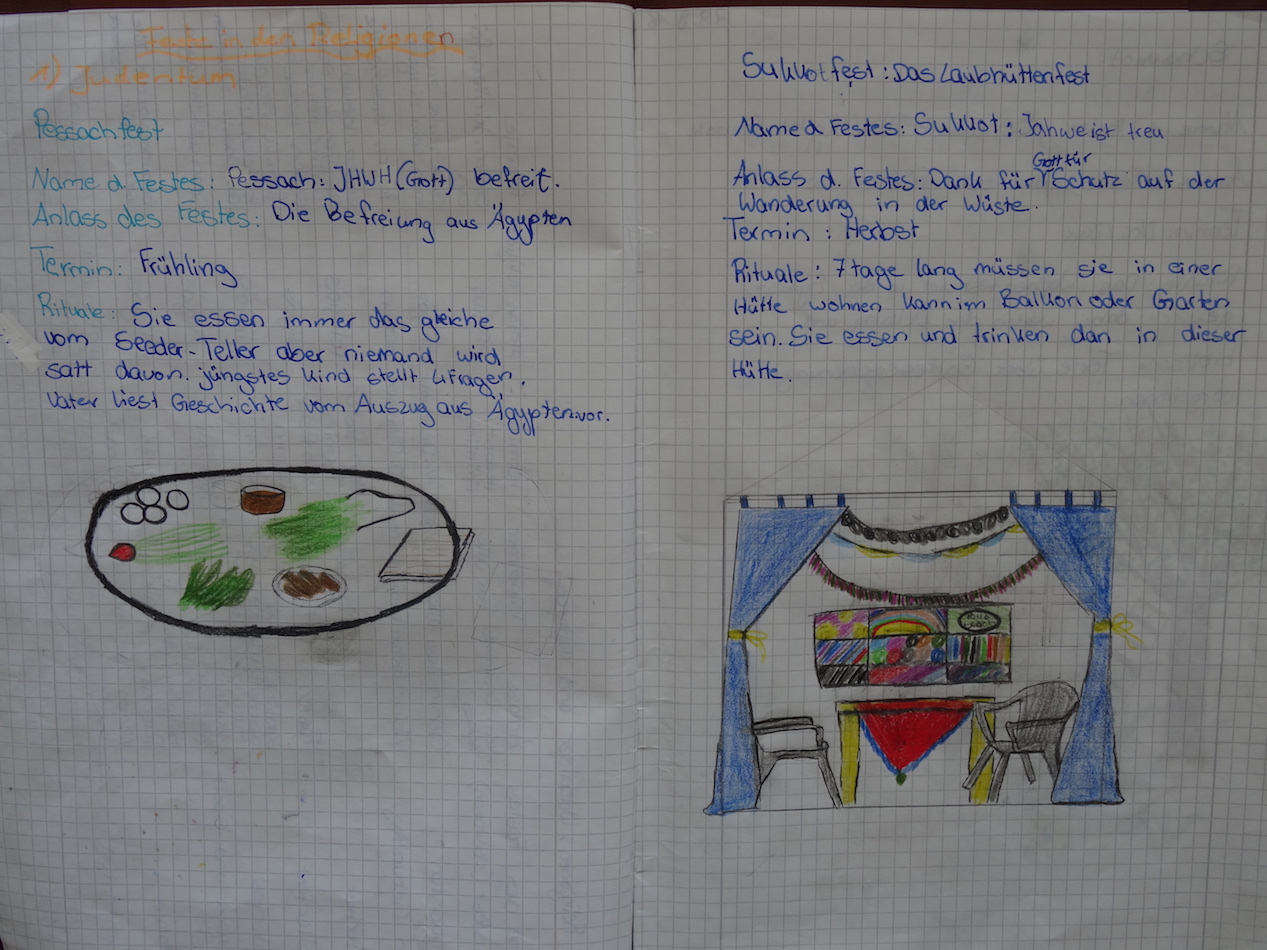 Feste in den Religionen
1) Judentum
Pessachfest
Name d. Festes: Pessach: JHWH (Gott) befreit.
Anlass des Festes: Die Befreiung aus Ägypten
Termin: Frühling
Rituale: Sie essen immer das gleiche
vom Seeder-Teller aber niemand wird
satt davon. jüngstes Kind stellt 4 Fragen.
Vater liest Geschichte vom Auszug aus Ägypten vor.
Sukkotfest: Das Laubhüttenfest
Name d Festes: Sukkot: Jahwe ist treu
Gott für
Anlass d. Festes: Dank für Schutz auf der
Wanderung in der Wüste.
Termin: Herbst
Rituale: 7 tage lang müssen sie in einer
Hütte wohnen kann im Balkon oder Garten
sein. Sie essen und trinken dan in dieser
Hütte.